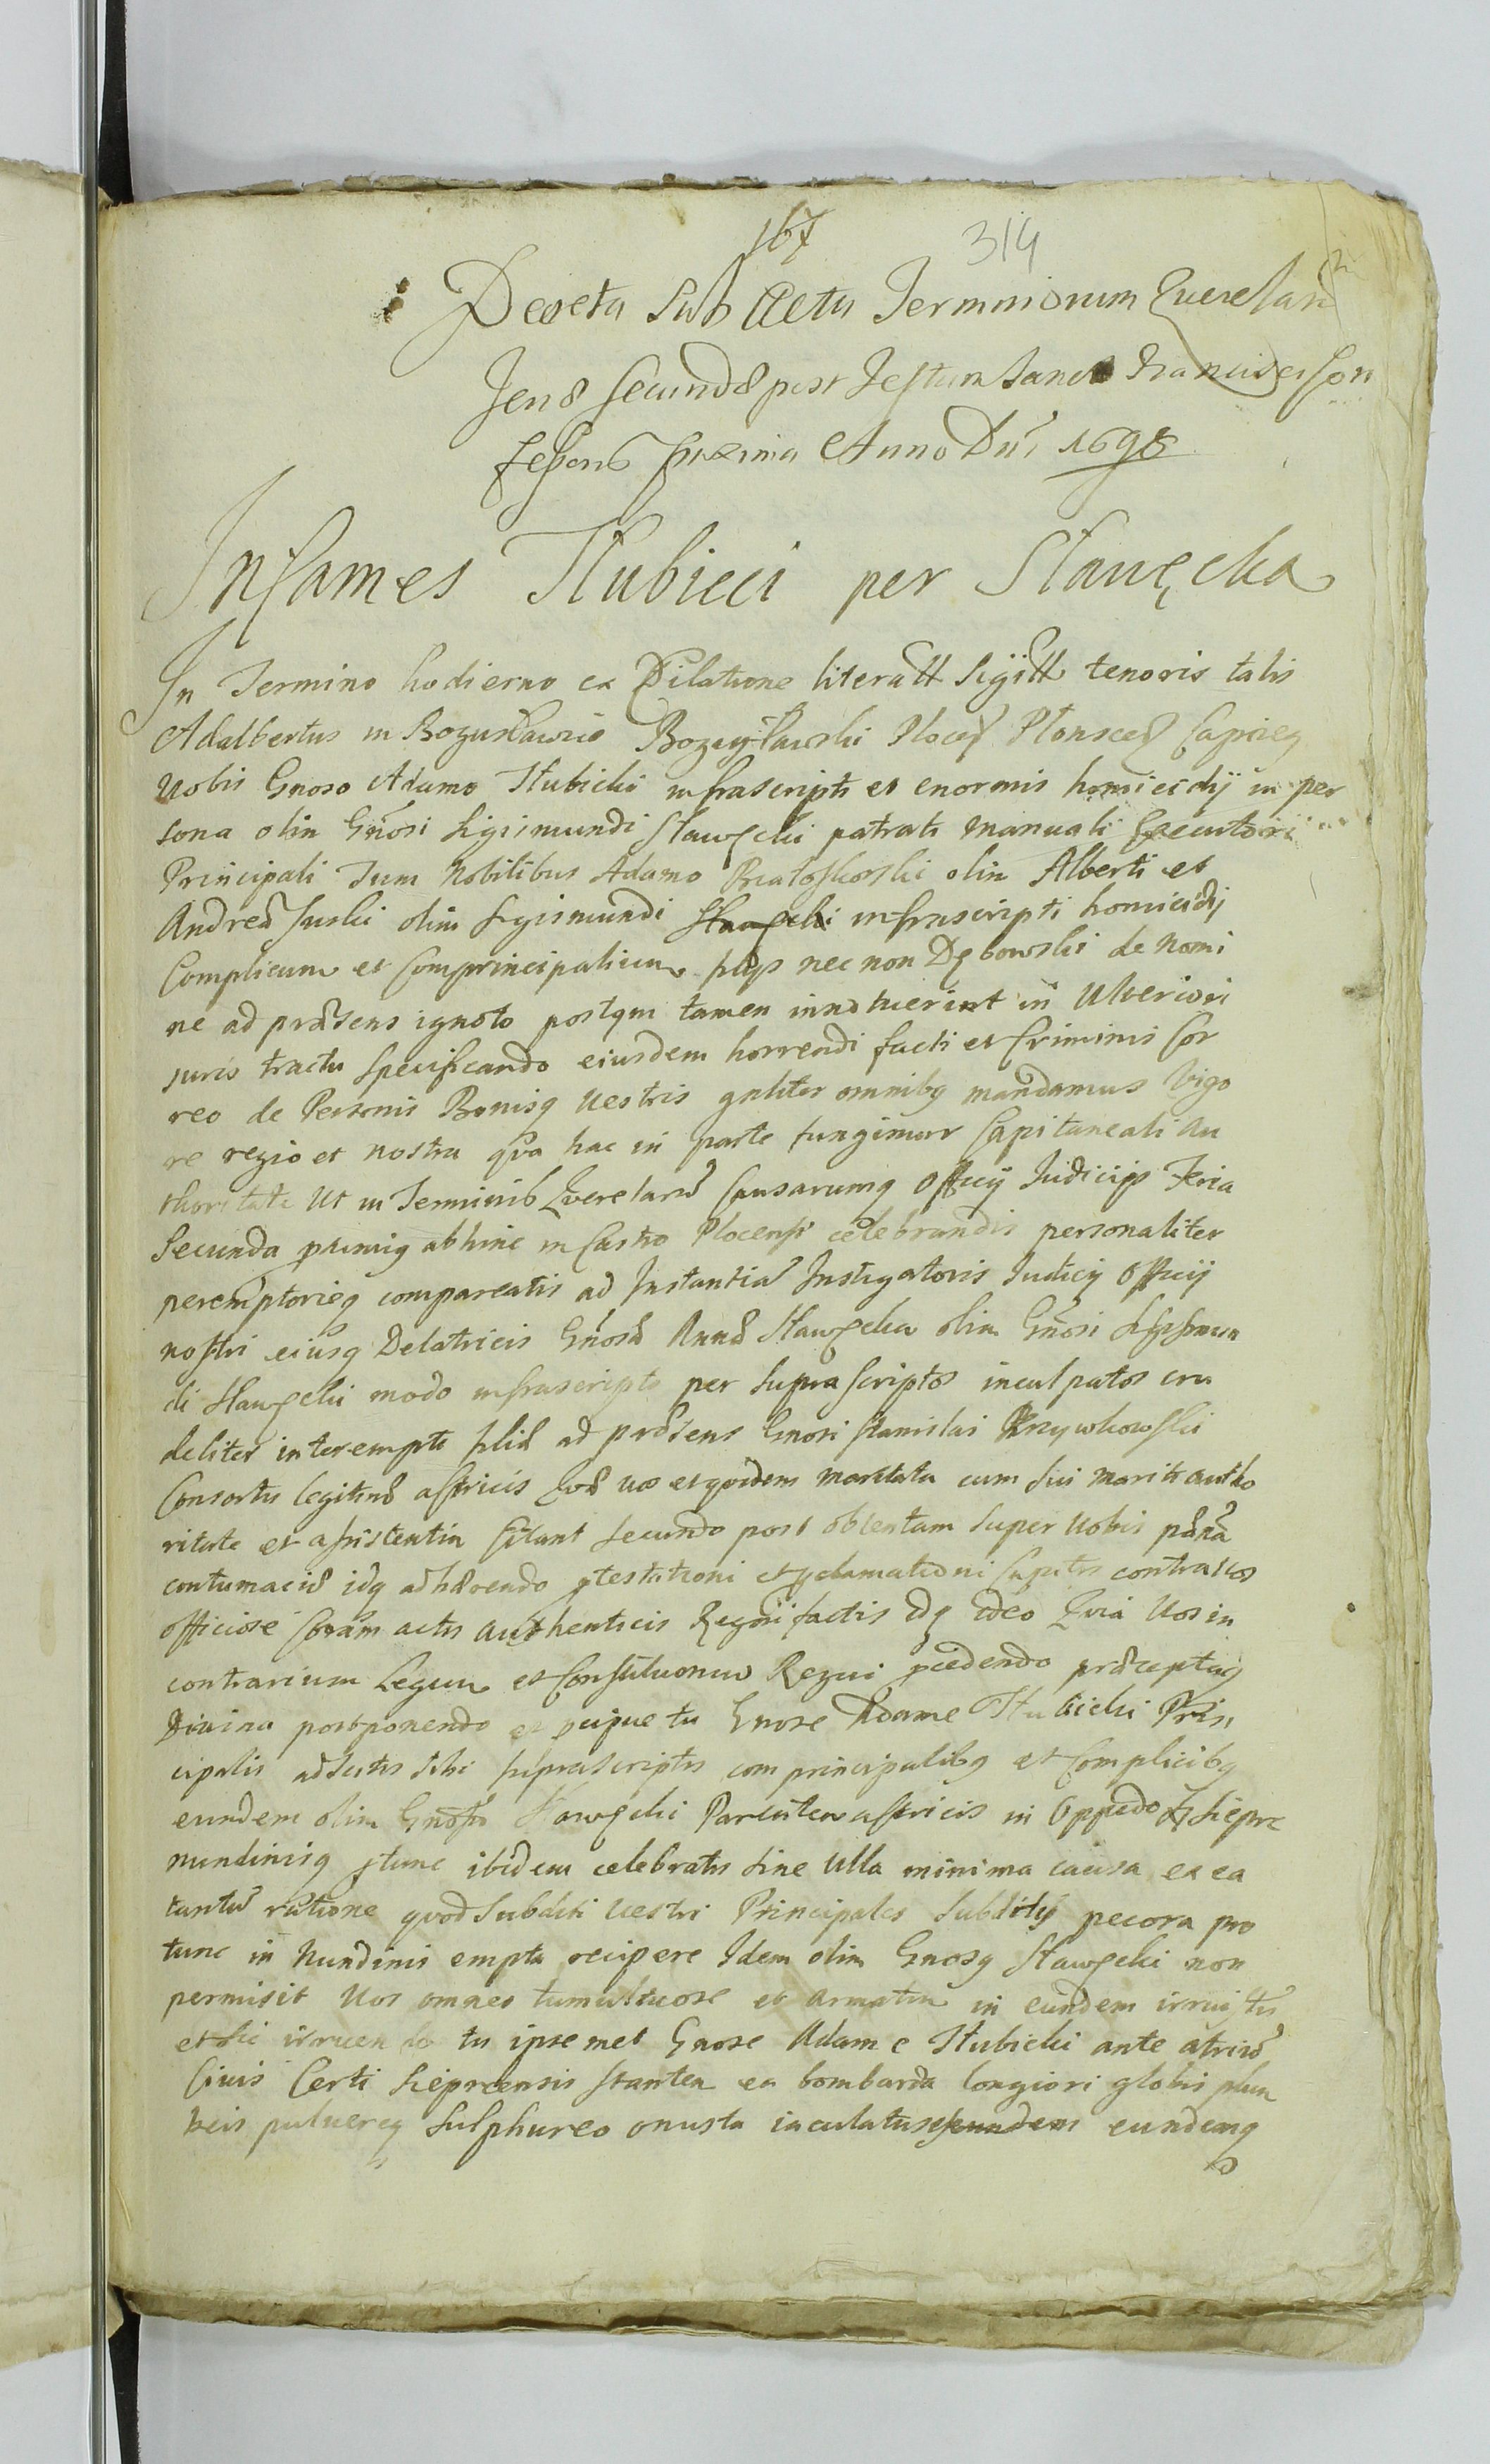 167 314
Decreta Sub Actu Terminorum Querelarũ
Feriæ Secundæ post Festum Sancti Francisci Con
fessoris proxima Anno Dnĩ 1698
Infames Tłubicci per Sławęcka
In Termino hodierno ex Dilatione literatt Sigitt tenoris talis
Adalbertus in Bogusławice Bogusławski Plocen Plonscen Capneq
Vobis Gnoso Adamo Tłubicki infrascripti et enormis homicidij in per
sona olim Gnosi Sigismundi Sławęcki patrati manuali Executori
Principali Tum Nobilibus Adamo olim Alberti et
Andreæ Suski olim Sigismundi infrascripti homicidij
Complicum et Comprincipalium filijs nec non Dębowski de nomi
ne ad præsens ignoto postqm tamen innotuerint in Ulteriori
juris tractu specificando eiusdem horrendi facti et Criminis Cor
reo de Personis Bonisq Vestris gnliter omnibq mandamus Vigo
re regio et nostra qva hac in parte fungimur Capitaneali Au
thoritate Ut in Terminis Querelarũ Causarumq Officij Judicijs Feria
Secunda primis abhinc in Castro Plocensi celebrandis personaliter
peremptorieq compareatis ad Instantiã Instigatoris Judicij Officij
nostri eiusq Delatricis Gnosæ Annæ Sławęcka olim Gnosi Sigismun
di Sławęcki modo infrascripto per suprascriptos inculpatos cru
deliter interempti filiæ ad præsens Gnosi Stanislai Krzywkowski
Consortis legitimæ actricis Quæ vos et qvidem maritata cum sui mariti autho
ritate et assistentia Citant secundo post obtentam super Vobis pænã
contumaciæ idq adhærendo ptestationi et pclamationi Capitis contra vos
officiose Coram actis authenticis Regni factis idq ideo Quia Vos in
contrarium Legum et Constitutionum Regni pcedendo præceptaq
Divina postponendo et pcipue tu Gnose Adame Tłubicki Prin
cipalis adscitis tibi suprascriptis comprincipalibq et Complicibq
eundem olim Gnosum Sławęcki Parentem actricis in Oppido Sieprc
nundinisq ptunc ibidem celebratis sine ulla minima causa ex ea
tantũ ratione quod Subditi Vestri Principales Subditis pecora pro
tunc in Nundinis empta recipere Idem olim Gnosq Sławęcki non
permisit Vos omnes tumultuose et armatim in eundem irruistis
et sic irruendo tu ipsemet Gnose Adame Tłubicki ante atriũ
Civis Certi Sieprcensis stantem ex bombarda longiori globis plum
beis pulvereq Sulphureo onusta iaculatus es eundem eundemq